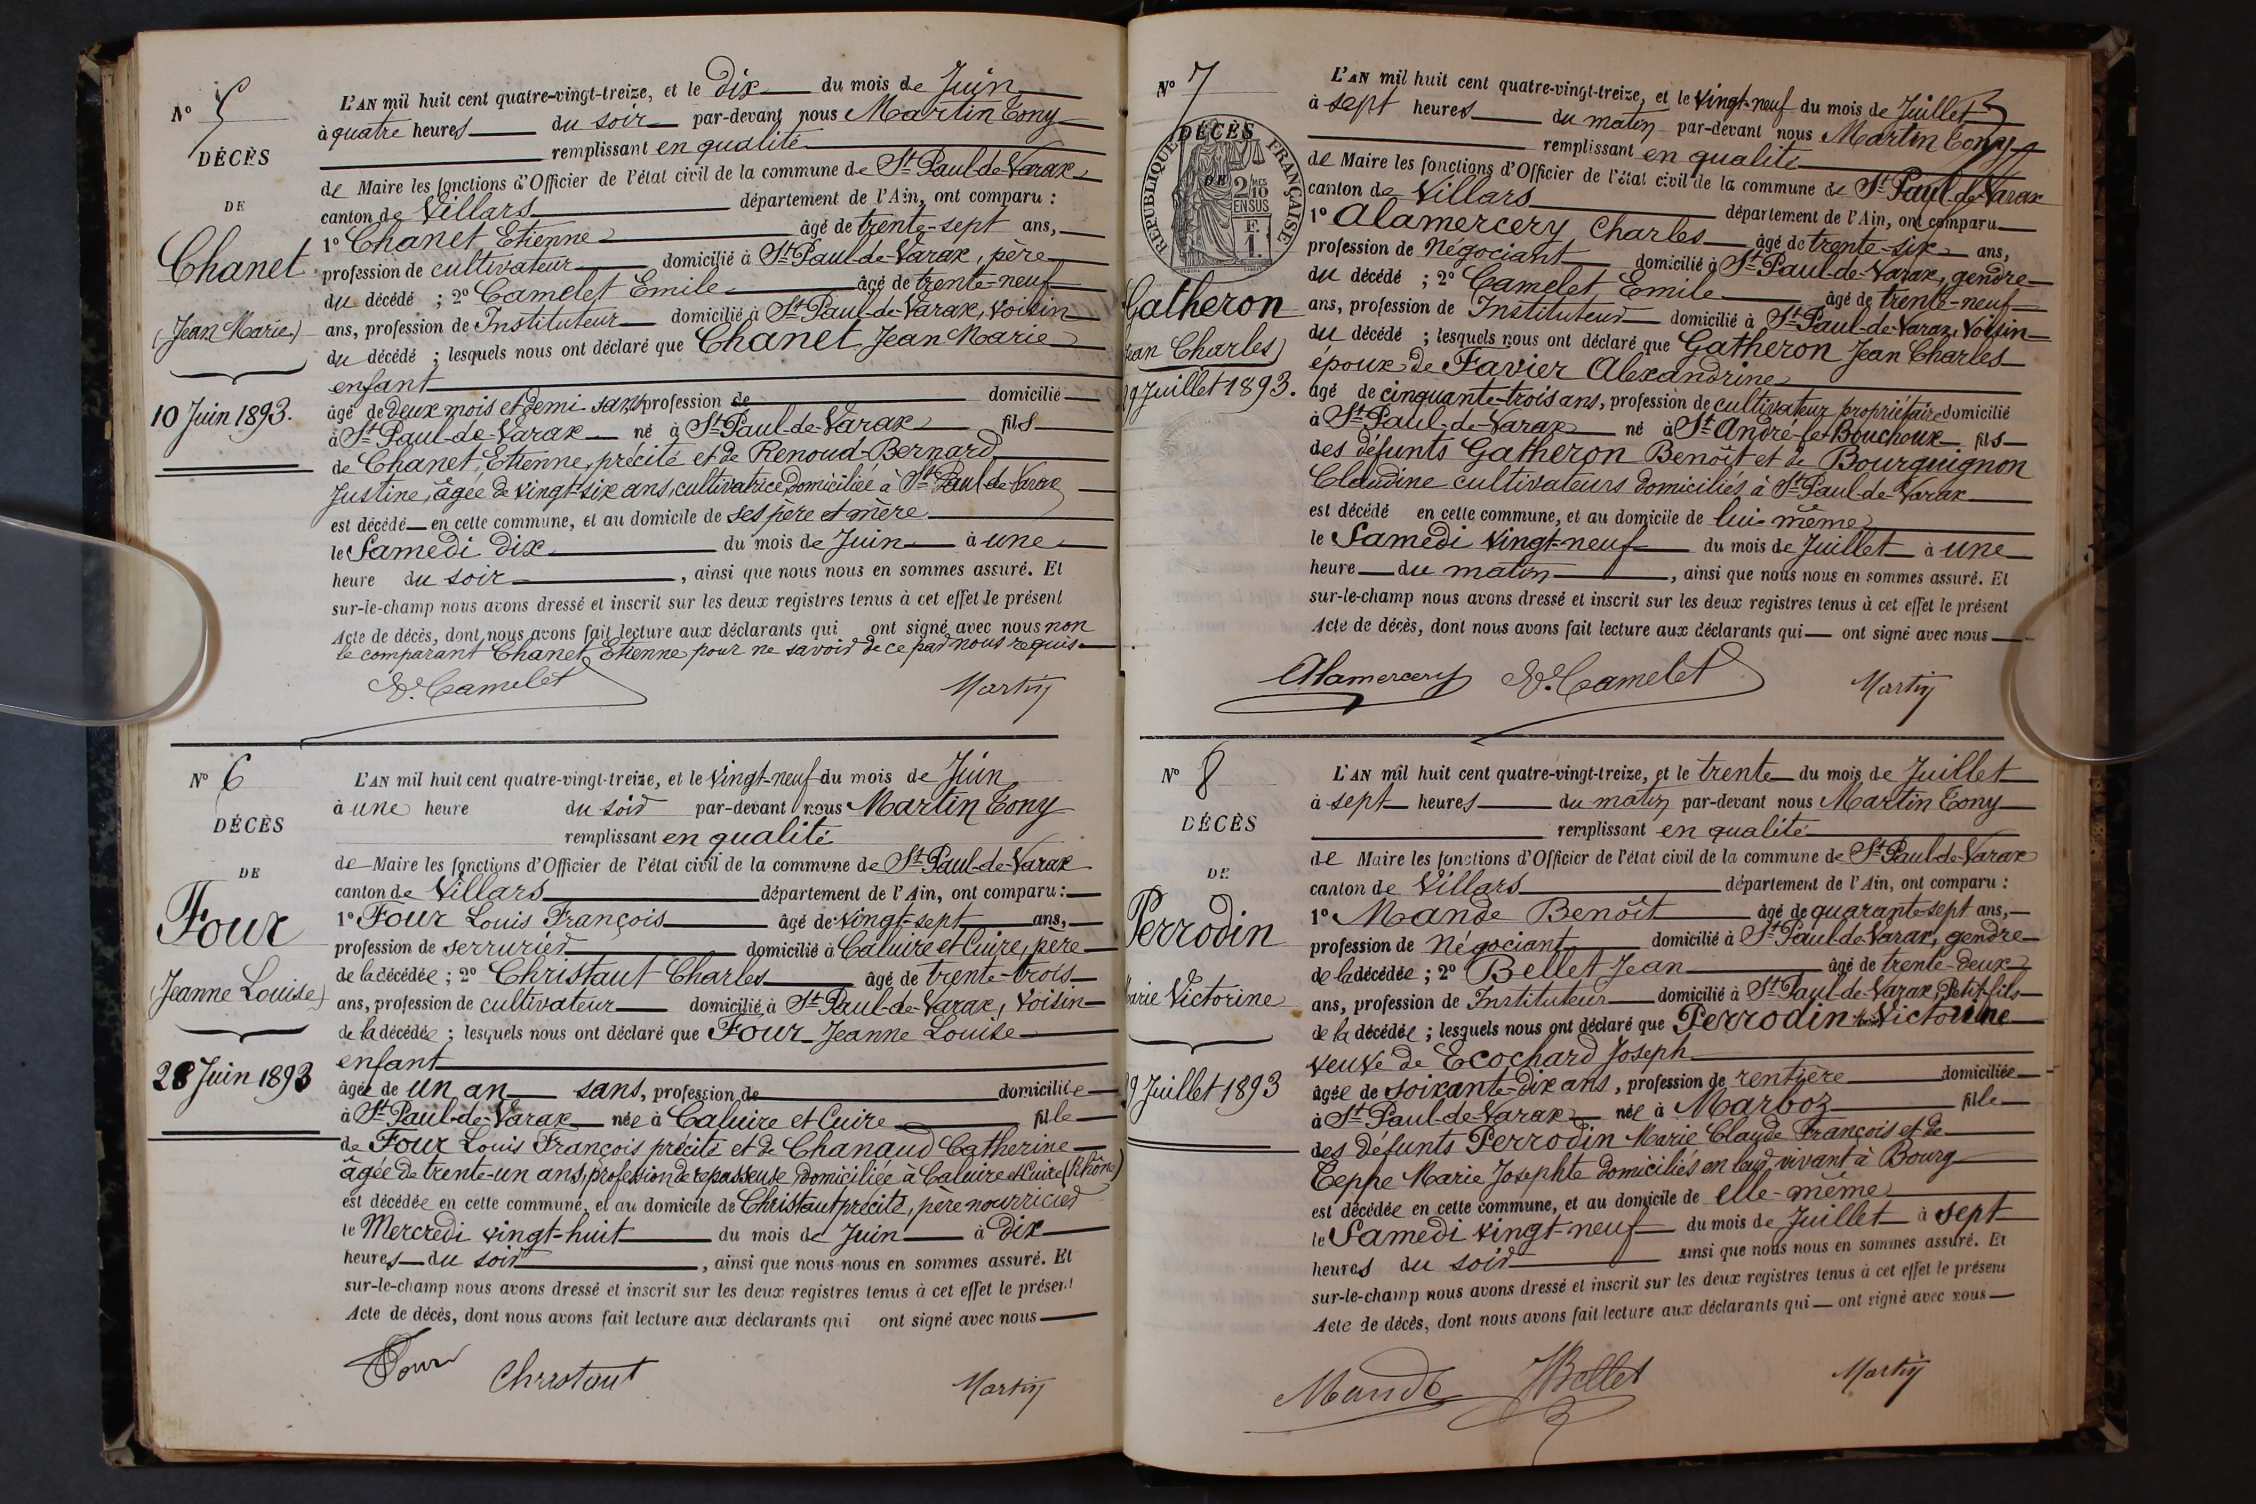 N° 5
DÉCÈS
DE
Chanet
(Jean Marie)
10 Juin 1893.
L'AN mil huit cent quatre-vingt-treize, et le dix du mois de Juin
à quatre heures du soir par-devant nous Martin Tony
remplissant en qualité
de Maire les fonctions d'Officier de l'état civil de la commune de St Paul-de-Varax
canton de Villars département de l'Ain, ont comparu :
1° Chanet Etienne âgé de trente-sept ans,
profession de cultivateur domicilié à St Paul-de-Varax, père
du décédé ; 2° Camelet Emile âgé de trente-neuf
ans, profession de Instituteur domicilié à St Paul-de-Varax, voisin
du décédé ; lesquels nous ont déclaré que Chanet Jean Marie
enfant
âgé de deux mois et demi sans profession de domicilié
à St Paul-de-Varax né à St Paul-de-Varax fils
de Chanet, Etienne, précité et de Renoud-Bernard
Justine, âgée de vingt-six ans, cultivatrice domiciliée à St Paul-de-Varax
est décédé en cette commune, et au domicile de ses père et mère
le Samedi dix du mois de Juin à une
heure du soir, ainsi que nous nous en sommes assuré. Et
sur-le-champ nous avons dressé et inscrit sur les deux registres tenus à cet effet le présent
Acte de décès, dont nous avons fait lecture aux déclarants qui ont signé avec nous non
le comparant Chanet Etienne pour ne savoir de ce par nous requis
E. Camelet Martin
N° 6
DÉCÈS
DE
Four
(Jeanne Louise)
28 Juin 1893
L'AN mil huit cent quatre-vingt-treize, et le vingt-neuf du mois de Juin
à une heure du soir par-devant nous Martin Tony
remplissant en qualité
de Maire les fonctions d'Officier de l'état civil de la commune de St Paul-de-Varax
canton de Villars département de l'Ain, ont comparu :
1° Four Louis François âgé de vingt-sept ans,
profession de serrurier domicilié à Caluire et Cuire, père
de la décédée ; 2° Christaut Charles âgé de trente-trois
ans, profession de cultivateur domicilié à St Paul-de-Varax, voisin
de la décédée ; lesquels nous ont déclaré que Four Jeanne Louise
enfant
âgée de un an sans, profession de domiciliée
à St Paul-de-Varax née à Caluire et Cuire fille
de Four Louis François précité et de Chanaud Catherine
âgée de trente-un ans, profession de repasseuse, domiciliée à Caluire et Cuire (Rhône)
est décédée en cette commune, et au domicile de Christaut précité, père nourricier
le Mercredi vingt-huit du mois de Juin à dix
heures du soir, ainsi que nous nous en sommes assuré. Et
sur-le-champ nous avons dressé et inscrit sur les deux registres tenus à cet effet le présent
Acte de décès, dont nous avons fait lecture aux déclarants qui ont signé avec nous
Four Christaut Martin
N° 7
DÉCÈS
DE
RÉPUBLIQUE FRANÇAISE
2/10 MES EN SUS
F. 1.
Gatheron
Jean Charles)
29 Juillet 1893.
L'AN mil huit cent quatre-vingt-treize, et le vingt-neuf du mois de Juillet
à sept heures du matin par-devant nous Martin Tony
remplissant en qualité
de Maire les fonctions d'Officier de l'état civil de la commune de St Paul-de-Varax
canton de Villars département de l'Ain, ont comparu
1° Alamercery Charles âgé de trente-six ans,
profession de Négociant domicilié à St Paul-de-Varax, gendre
du décédé ; 2° Camelet Emile âgé de trente-neuf
ans, profession de Instituteur domicilié à St Paul-de-Varax, voisin
du décédé ; lesquels nous ont déclaré que Gatheron Jean Charles
époux de Favier Alexandrine
âgé de cinquante-trois ans, profession de cultivateur propriétaire domicilié
à St Paul-de-Varax né à St André-le-Bouchoux fils
des défunts Gatheron Benoît et de Bourguignon
Claudine cultivateurs domiciliés à St Paul-de-Varax
est décédé en cette commune, et au domicile de lui-même
le Samedi vingt-neuf du mois de Juillet à une
heure du matin, ainsi que nous nous en sommes assuré. Et
sur-le-champ nous avons dressé et inscrit sur les deux registres tenus à cet effet le présent
Acte de décès, dont nous avons fait lecture aux déclarants qui ont signé avec nous
Alamercery E. Camelet Martin
N° 8
DÉCÈS
DE
Perrodin
Marie Victorine
29 Juillet 1893
L'AN mil huit cent quatre-vingt-treize, et le trente du mois de Juillet
à sept heures du matin par-devant nous Martin Tony
remplissant en qualité
de Maire les fonctions d'Officier de l'état civil de la commune de St Paul-de-Varax
canton de Villars département de l'Ain, ont comparu :
1° Mande Benoît âgé de quarante-sept ans,
profession de Négociant domicilié à St Paul-de-Varax, gendre
de la décédée ; 2° Bellet Jean âgé de trente-deux
ans, profession de Instituteur domicilié à St Paul-de-Varax, Petit-fils
de la décédée ; lesquels nous ont déclaré que Perrodin Victorine
veuve de Ecochard Joseph
âgée de soixante-dix ans, profession de rentière domiciliée
à St Paul-de-Varax née à Marboz fille
des défunts Perrodin Marie Claude François et de
Teppe Marie Josephte domiciliés en leur vivant à Bourg
est décédée en cette commune, et au domicile de elle-même
le Samedi vingt-neuf du mois de Juillet à sept
heures du soir ainsi que nous nous en sommes assuré. Et
sur-le-champ nous avons dressé et inscrit sur les deux registres tenus à cet effet le présent
Acte de décès, dont nous avons fait lecture aux déclarants qui ont signé avec nous
Mande JBellet Martin